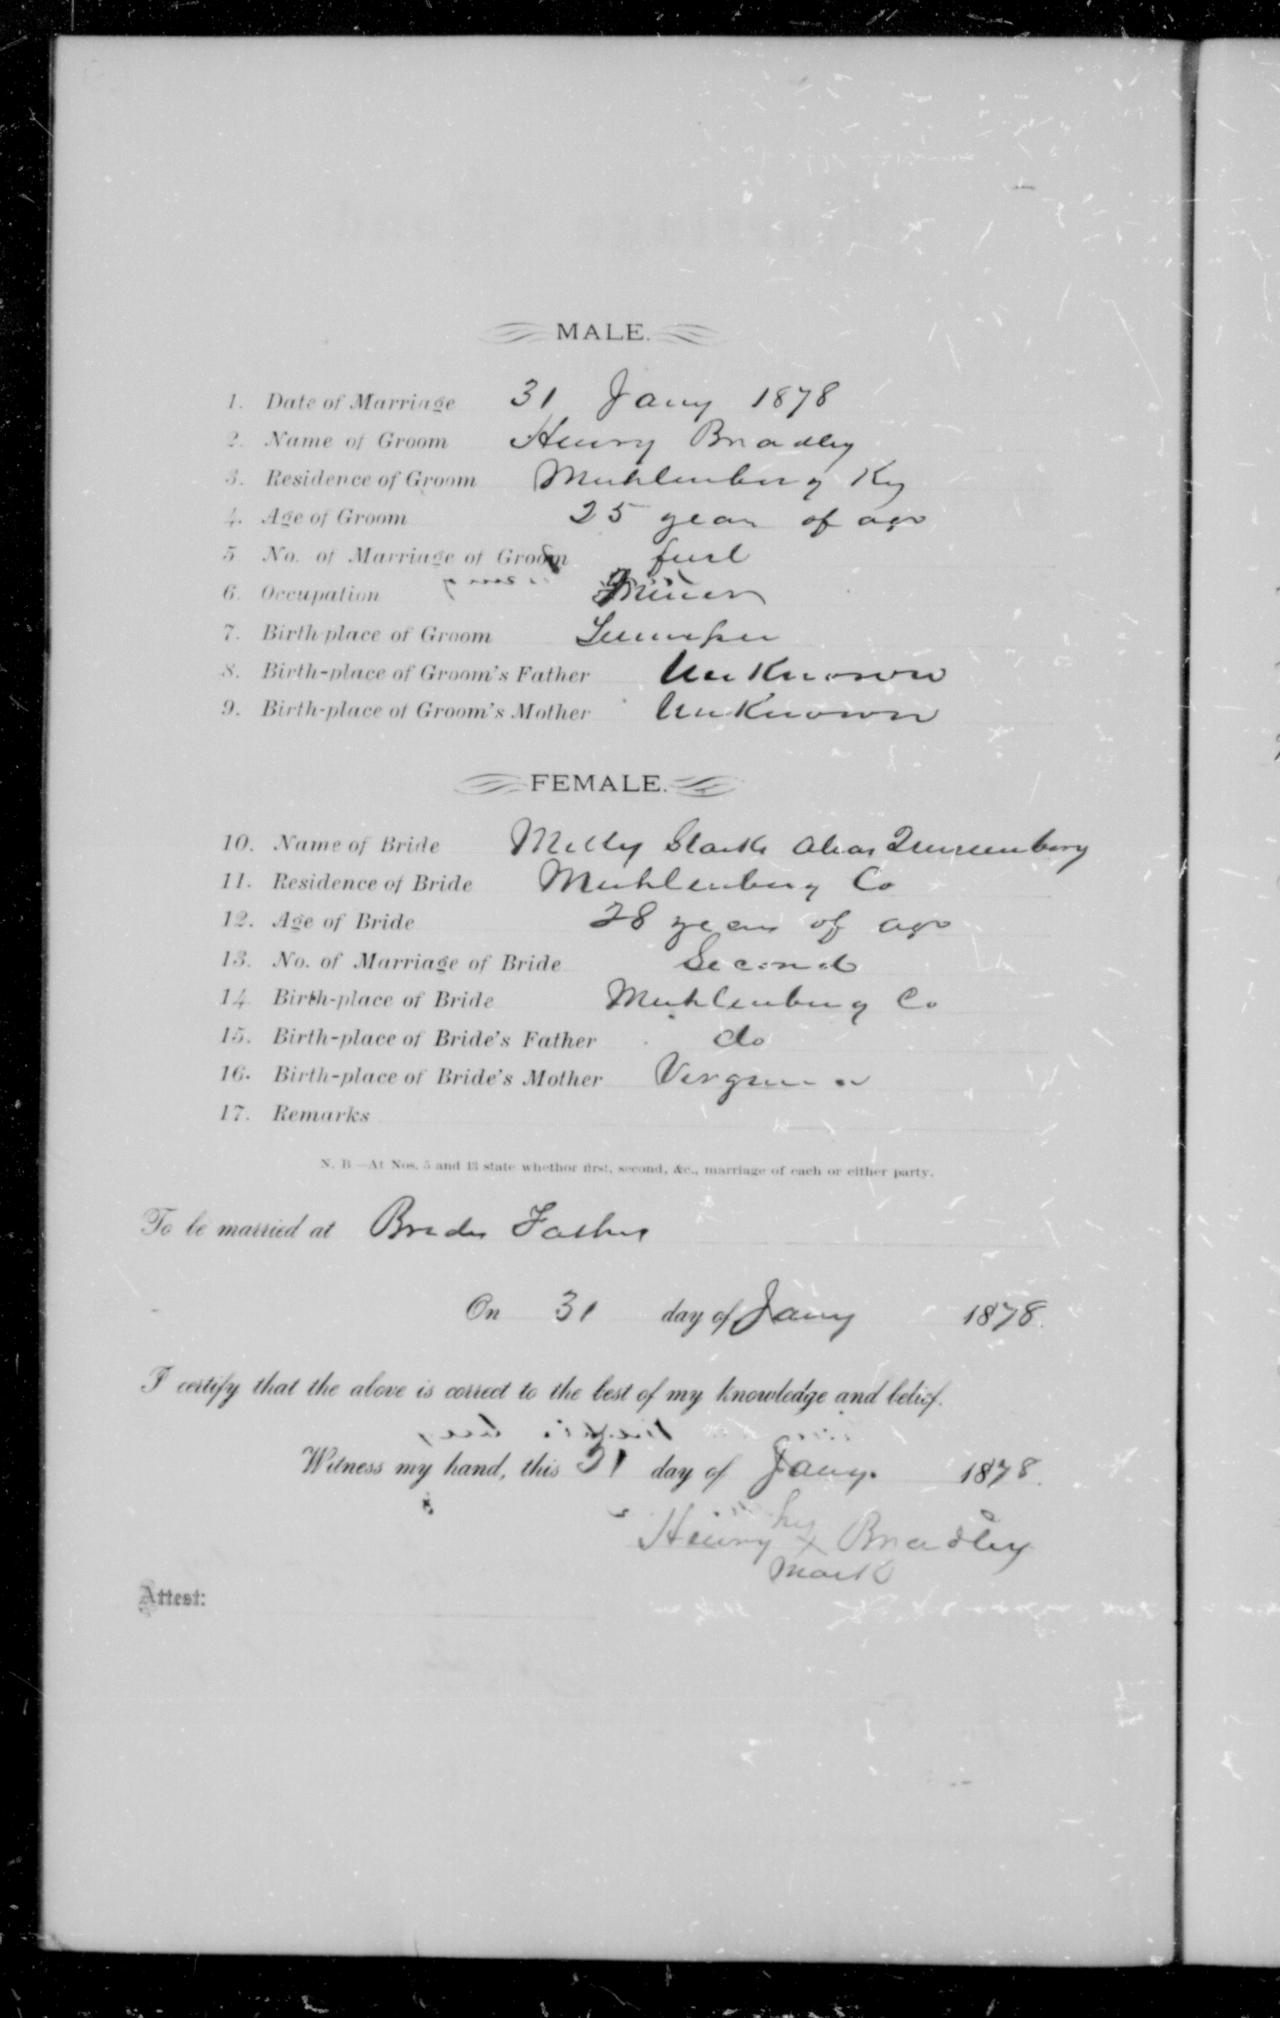 MALE.
1. Date of Marriage 31 Jany 1878
2. Name of Groom Henry Bradley
3. Residence of Groom Muhlenburg Ky
4. Age of Groom 25 years of age
5 No. of Marriage of Groom first
6. Occupation Miner
7. Birth-place of Groom
8. Birth-place of Groom's Father UnKnown
9. Birth-place of Groom's Mother UnKnown
FEMALE.
10. Name of Bride Milly alias
11. Residence of Bride Muhlenburg Co
12. Age of Bride 28 years of age
13. No. of Marriage of Bride Second
14 Birth-place of Bride Muhlenburg Co
15. Birth-place of Bride's Father do
16. Birth-place of Bride's Mother Virginia
17. Remarks
N. B.—At Nos. 5 and 13 state whether first, second, &c., marriage of each or either party.
To be married at Brides Fathers
On 31 day of Jany 1878.
I certify that the above is correct to the best of my knowledge and belief.
Witness my hand, this 31 day of Jany. 1878.
his
Henry X Bradley
mark
Attest: